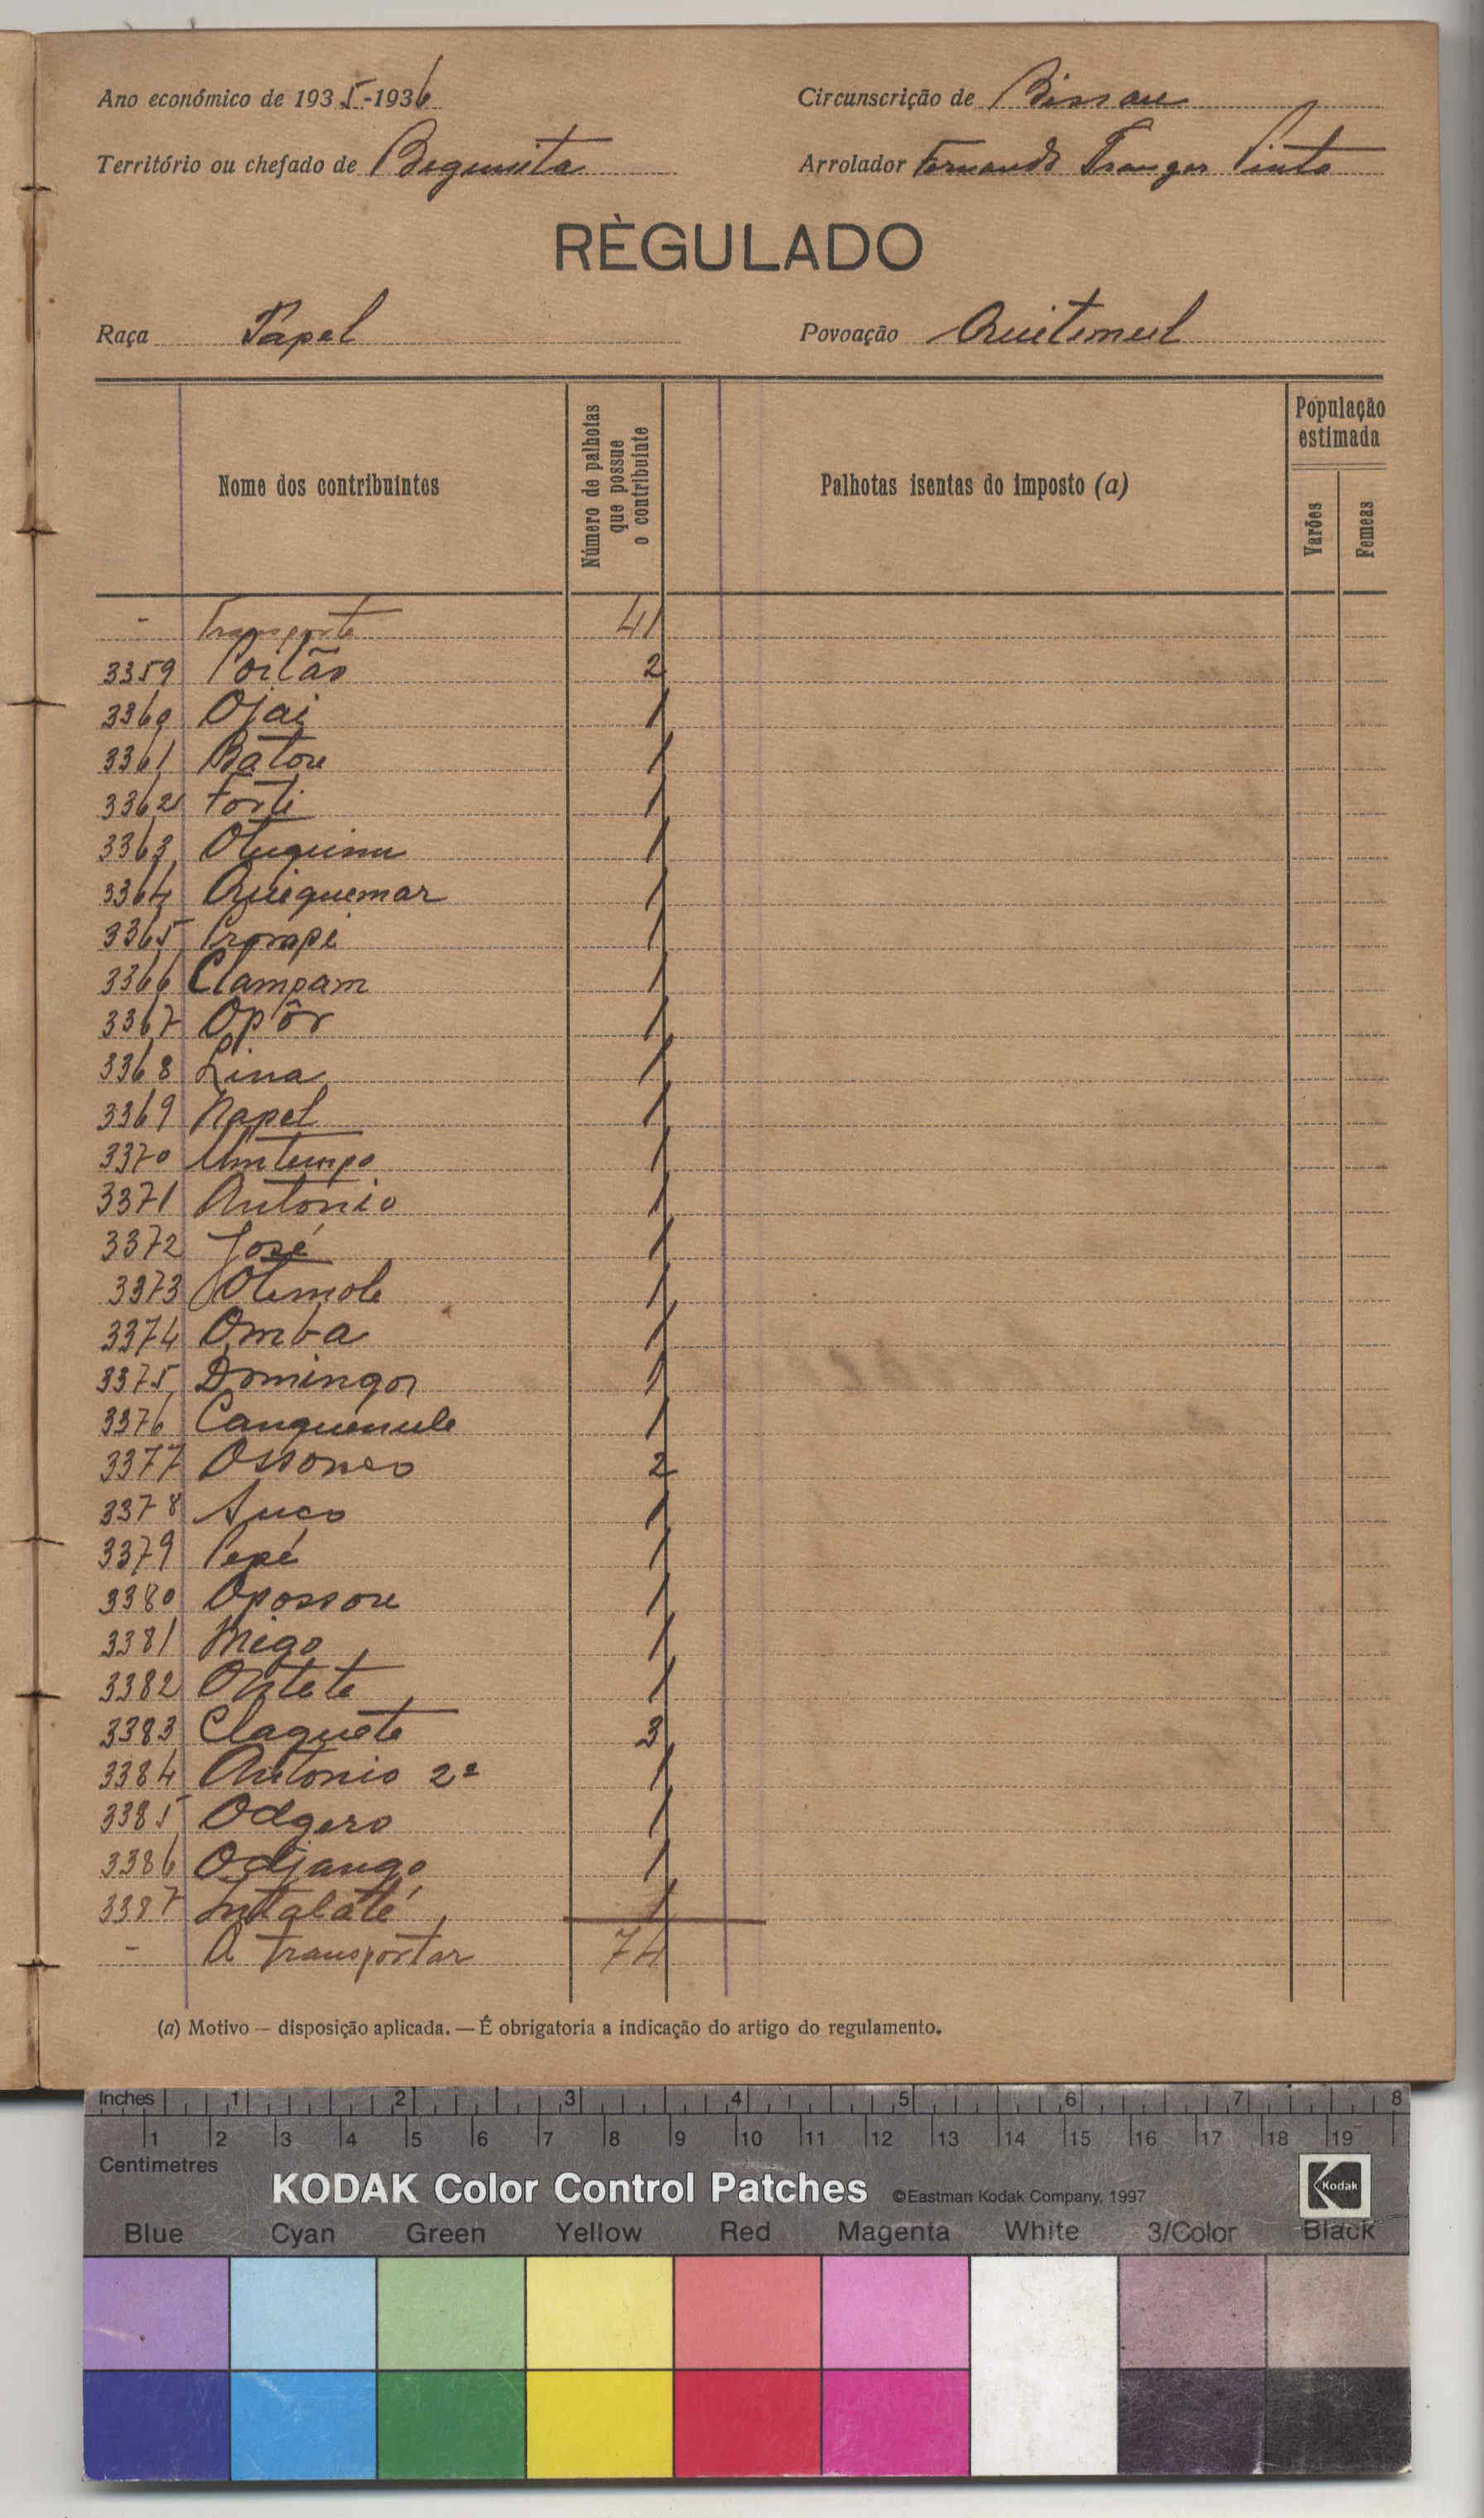 Ano económico de 1935-1936
Circunscrição de Bissau
Território ou chefado de Begumita
Arrolador Fernando Pinto
RÈGULADO
Raça Papel
Povoação Quitemul
Nome dos contribuintes
Número de palhotas que possue o contribuinte
Palhotas isentas do imposto (a)
População estimada
Varões
Femeas
- Transporte 41
3359 Poilão 2
3360 Ojai 1
3361 Batou 1
3362 Forti 1
3363 1
3364 Quiquemar 1
3365 Crompi 1
3366 Clampam 1
3367 Opôr 1
3368 Lina 1
3369 Napel 1
3370 Umtempo 1
3371 Antonio 1
3372 José 1
3373 Otemole 1
3374 Omba 1
3375 Domingos 1
3376 Canquenule 1
3377 Ossoneo 2
3378 Suco 1
3379 Pepé 1
3380 Opossou 1
3381 Migo 1
3382 Ontete 1
3383 Claquete 3
3384 Antonio 2º 1
3385 Odgero 1
3386 Odjango 1
3387 Intalaté 1
- A transportar 74
(a) Motivo — disposição aplicada. — É obrigatoria a indicação do artigo do regulamento.
Inches 1 2 3 4 5 6 7 8
1 2 3 4 5 6 7 8 9 10 11 12 13 14 15 16 17 18 19
Centimetres
KODAK Color Control Patches ©Eastman Kodak Company, 1997 Kodak
Blue Cyan Green Yellow Red Magenta White 3/Color Black